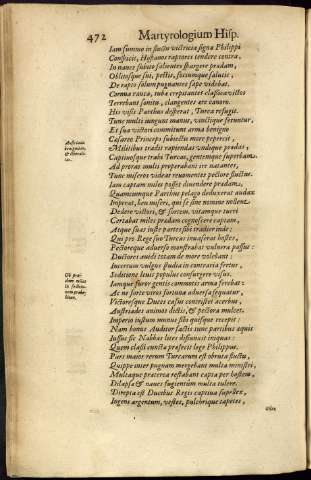 472 Martyrologium Hisp.
Iam summo in fluctu victricia signa Philippi
Conspicit, Hispanos raptores tendere contra,
In naues subito salientes spargere prædam,
Oblitosque sui, pestis, socíumque salutis,
De rapto solum pugnantes sæpe videbat.
Cornua rauca, tuba crepitantes classica victos
Terrebant sonitu, clangentes ære canoro.
His visis Parthus desperat, Turca refugit.
Tunc multi iungunt manus, vinctíque fatentur,
Et sua victori committunt arma benigno
Cæsareo Princeps subiectis more pepercit,
Militibus tradit rapiendas vndique prædas,
Captiuosque trahi Turcas, gentemque superbam.
Ad proras multi properabant ire natantes,
Tunc miseros videat reuomentes pectore fluctus.
Iam captam miles posset diuendere prædam,
Quamcumque Parthus pelago deduxerat audax
Imperat, heu miseri, qui se sine nomine nollent
Dedere victori, & fortem, vitamque tueri
Certabat miles prædam cognoscere captam,
Atque suas iuste partes sibi tradier inde:
Qui pro Rege suo Turcas inuaserat hostes,
Pectoreque aduerso monstrabat vulnera passus:
Ductores auidi totam de more volebant:
Incertum vulgus studia in contraria fertur,
Seditione leuis populus consurgere visus.
Iamque furor gentis commotis arma ferebat:
Ac ne forte viros fortuna aduersa sequatur,
Victoresque Duces casus contristet aceruus,
Austriades animos dictis, & pectora mulcet.
Imperio iustum munus sibi quisque recepit:
Nam bonus Auditor factis tunc partibus æquis
Iussus sic Nabhas lites disiunxit iniquas:
Quem classi cuncta præfecit lege Philippus.
Pars maior rerum Turcarum est obruta fluctu,
Quippe inter pugnam mergebant multa ministri,
Multaque præterea restabant capta per hostem,
Dilapsa & naues fugientûm multa tulere.
Direpta est Ducibus Regis captiua supellex,
Ingens argentum, vestes, pulchrique tapetes,
Austriadis
& liberali-
tas.
Ob præ-
dam